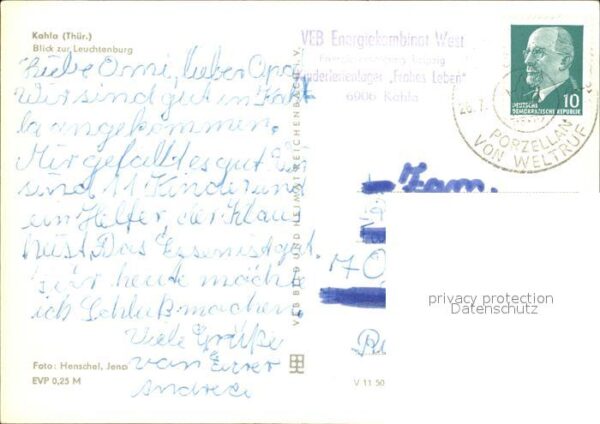 Kahla (Thür.)
Blick zur Leuchtenburg
Liebe Omi, lieber Opa
Wir sind gut in Kah
la angekommen.
Mir gefällt es gut. Es
sind 11 Kinder und
ein Helfer, der Klaus
heist. Das Essen ist gut.
für heute möchte
ich Schluß machen.
Viele Grüße
von Eurer
Andrea
Foto: Henschel, Jena
EVP 0,25 M
VEB BILD UND HEIMAT REICHENBACH I. V.
V 11 50
VEB Energiekombinat West
Energieversorgung Leipzig
Kinderferienlager "Frohes Leben"
6906 Kahla
DEUTSCHE
DEMOKRATISCHE REPUBLIK
10
26.7.
PORZELLAN
VON WELTRUF
Fam.
70
privacy protection
Datenschutz